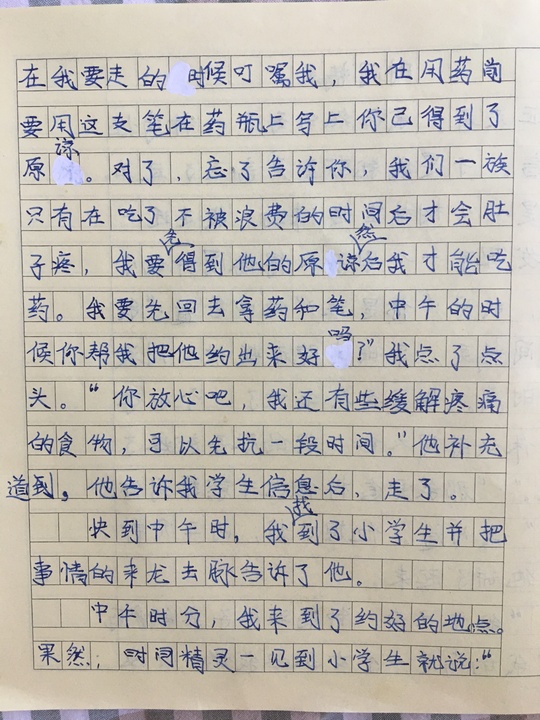 在我要走的时候叮嘱我，我在用药前
要用这支笔在药瓶上写上你已得到了
原谅。对了，忘了告诉你，我们一族
只有在吃了不被浪费的时间后才会肚
子疼，我要先得到他的原谅然后我才能吃
药。我要先回去拿药和笔，中午的时
候你帮我把他约出来好吗？”我点了点
头。“你放心吧，我还有些缓解疼痛
的食物，可以先抗一段时间。”他补充
道到。他告诉我学生信息后，走了。
快到中午时，我找到了小学生并把
事情的来龙去脉告诉了他。
中午时分，我来到了约好的地点。
果然；时间精灵一见到小学生就说：“